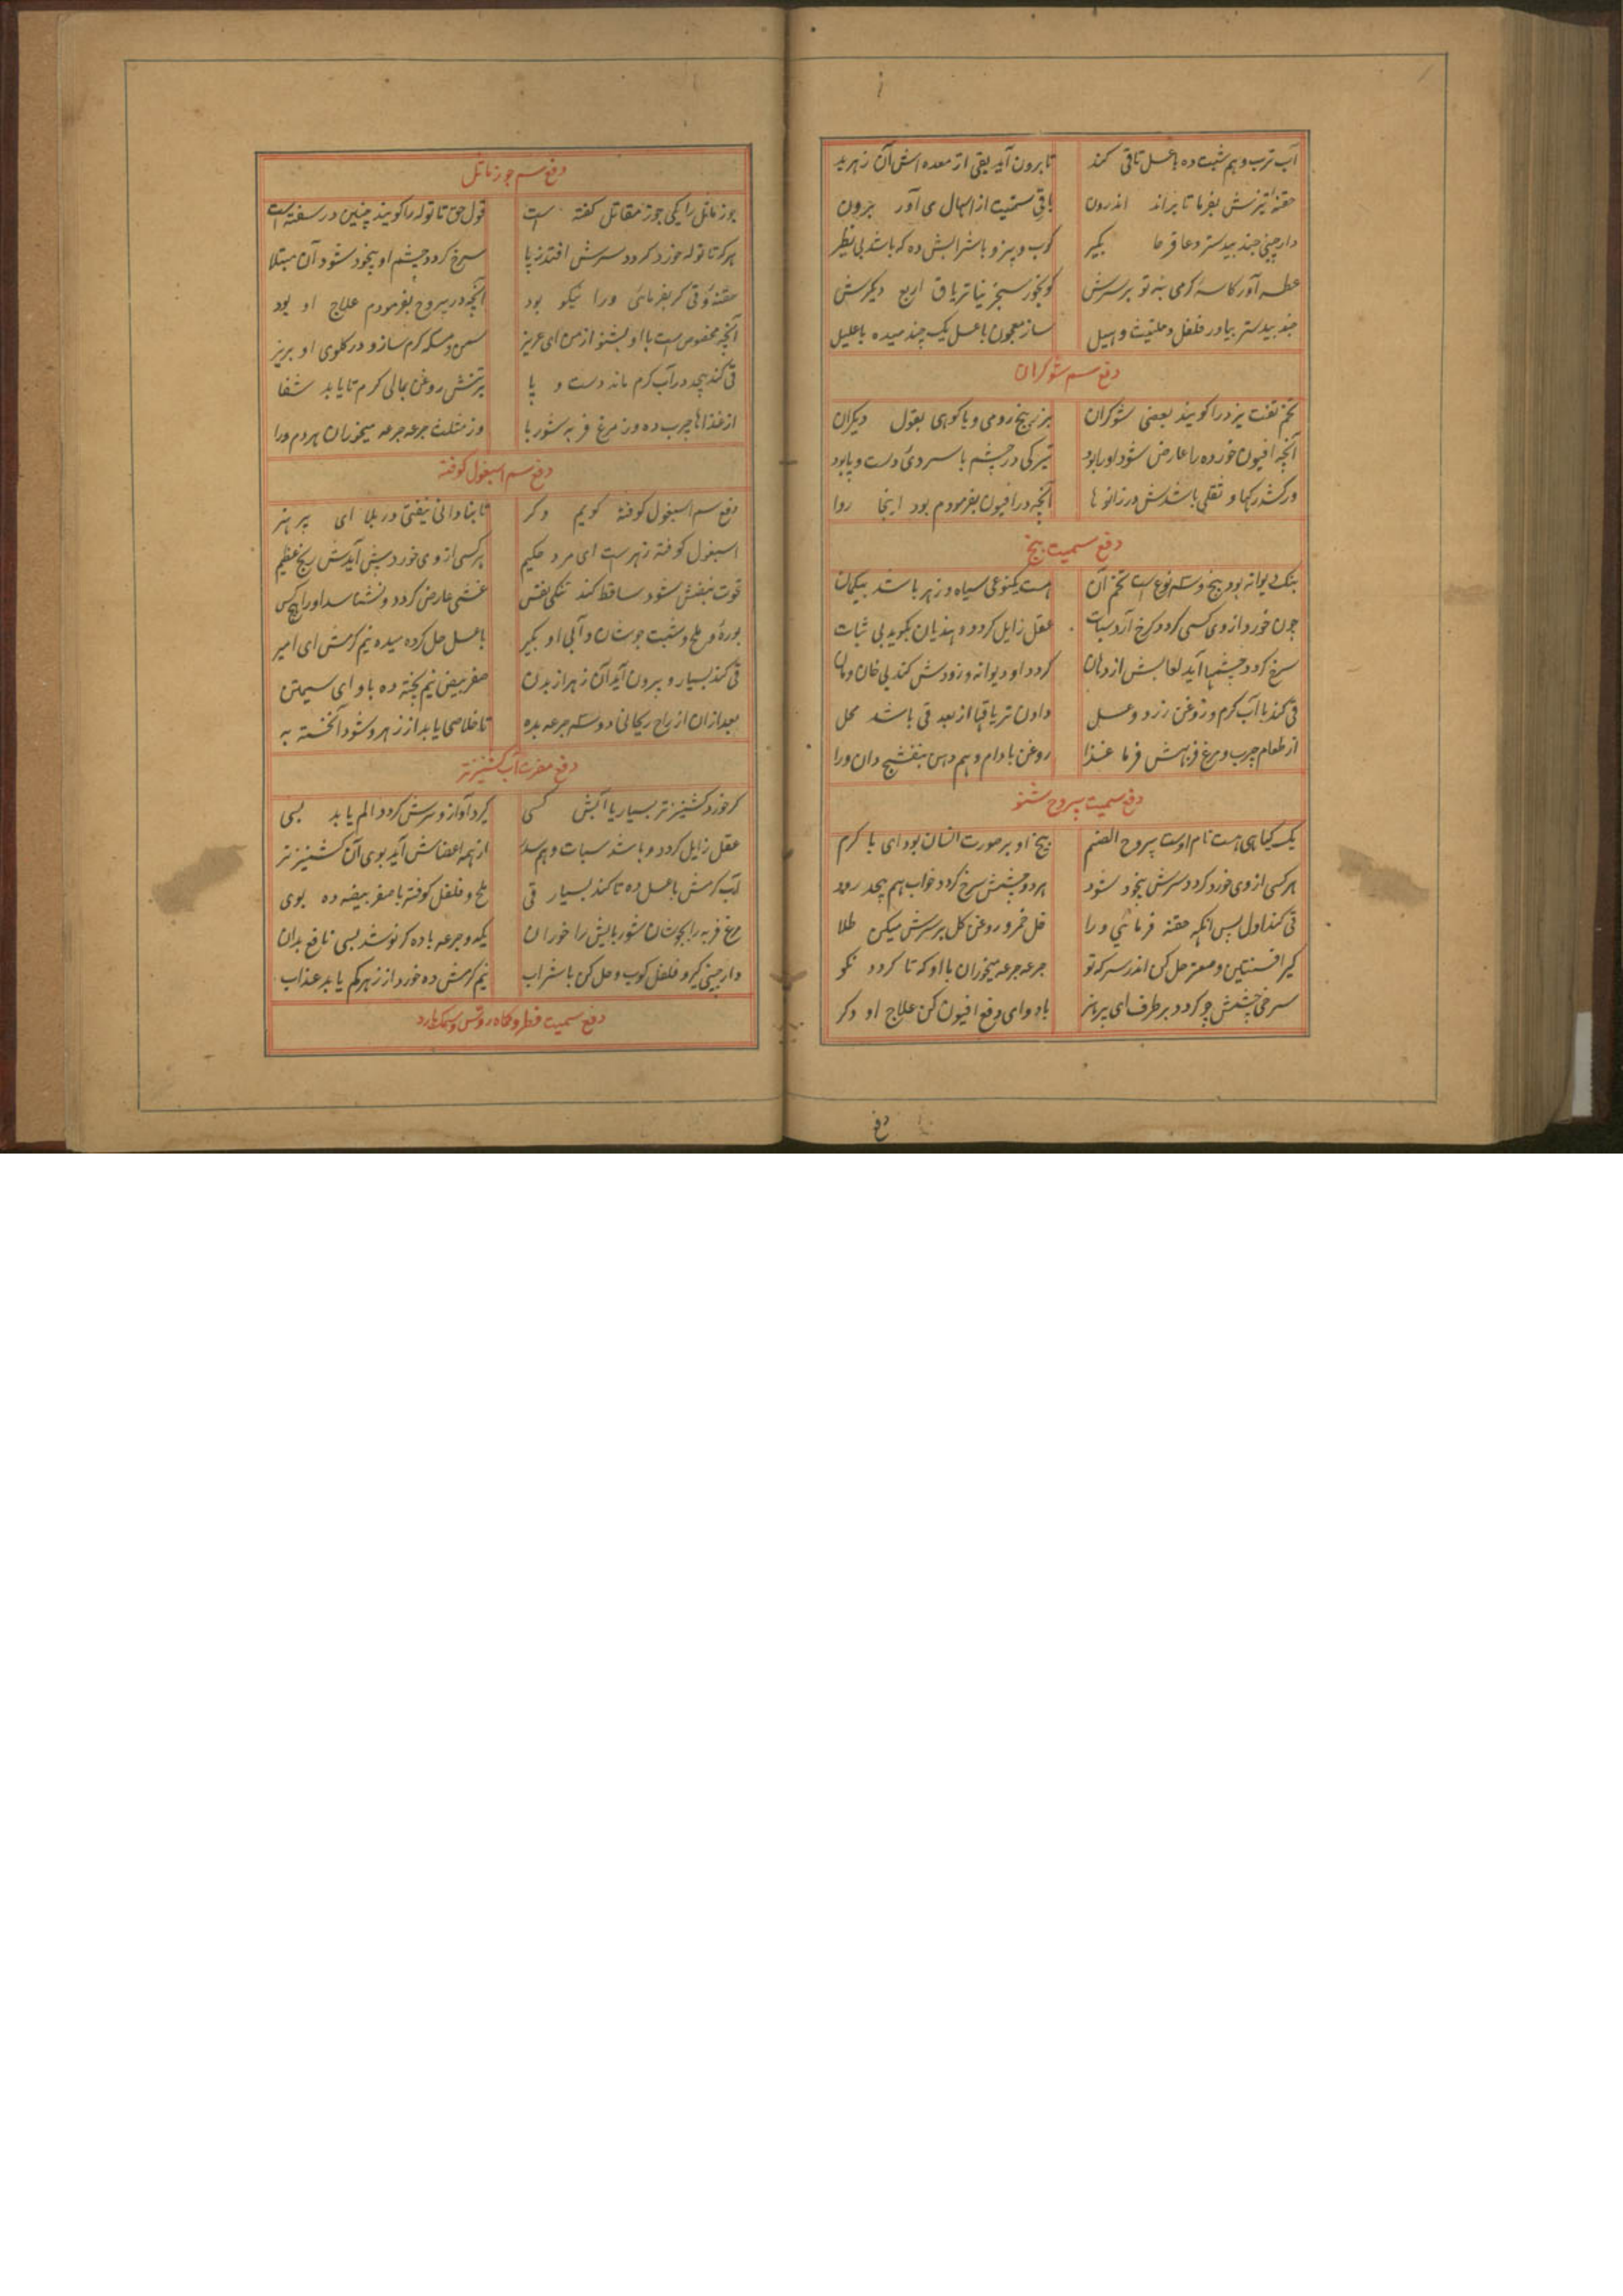 آب ترب و هم شبت ده با عسل تا قی کند تا برون آید بقی از معده اش آن زهر بد
حقنه تیزش بفرما تا براند اندرون باقی سمیت از اسهال می آور برون
دارچینی جند بیدستر و عاقرحا بگیر کوب و بیز و با شرابش ده که باشد بی نظیر
عطسه آور کاسهٔ گرمی بنه تو بر سرش گو بخور سجزینا تریاق اربع دیگرش
جند بیدستر بیاور فلفل و حلتیت و هیل ساز معجون با عسل یک چند میده با علیل
دفع سم شوکران
تخم تفت یزد را گویند بعضی شوکران بزر بنج رومی و یا کوهی بقول دیگران
آنچه افیون خورده را عارض شود او را بود تیرگی در چشم با سردی دست و پا بود
ور کشد رگها و ثقلی باشدش در زانو ها آنچه در افیون بفرمودم بود اینجا روا
دفع سمیت بنج
بنک دیوانه بود بنج و سه نوع است تخم آن هست یکنوعی سیاه و زهر باشد بیکمان
چون خورد از وی کسی گردد کرخ آرد سبات عقل زایل گردد و هذیان بگوید بی ثبات
سرخ گردد چشمها آید لعابش از دهان گردد او دیوانه و زودش کند بی خان و مان
قی کند با آب گرم و روغن زرد و عسل دادن تریاقها از بعد قی باشد محل
از طعام چرب و مرغ فربهش فرما غذا روغن بادام و هم دهن بنفشج دان ورا
دفع سمیت یبروح شنو
یک گیاهی هست نام اوست یبروح الصنم بیخ او بر صورت انسان بود ای با کرم
هر کسی از وی خورد گردد سرش بیخود شود هر دو چشمش سرخ گردد خواب هم بیحد رود
قی کند اول پس آنکه حقنه فرمائی ورا خل خمر و روغن گل بر سرش میکن طلا
گیر افسنتین و صعتر حل کن اندر سرکه تو جرعه جرعه میخوران با او که تا گردد نکو
سرخی چشمش چو گردد بر طرف ای پر هنر با دوای دفع افیون کن علاج او دگر
دفع
دفع سم جوز ماثل
جوز ماثل را یکی جوز مقاتل گفته است قول حق تاتوله را گویند چنین در سفته است
هر که تاتوله خورد گردد سرش افتد ز پا سرخ گردد چشم او بیخود شود آن مبتلا
حقنه و قی گر بفرمائی ورا نیکو بود آنچه در یبروح بفرمودم علاج او بود
آنچه مخصوص است با او بشنو از من ای عزیز سمن و مسکه گرم ساز و در گلوی او بریز
قی کند بیحد در آب گرم ماند دست و پا بر تنش روغن بمالی گرم تا یابد شفا
از غذاها چرب ده وز مرغ فربه شوربا وز مثلث جرعه جرعه میخوران هر دم ورا
دفع سم اسبغول کوفته
دفع سم اسبغول کوفته گویم دگر تا بنادانی نیفتی در بلا ای پر هنر
اسبغول کوفته زهرست ای مرد حکیم هر کسی از وی خورد پیش آیدش رنج عظیم
قوت نبضش شود ساقط کند تنگی نفس غشی عارض گردد و نشناسد او را هیچکس
بوره و ملح و شبت جوشان و آبی او بگیر با عسل حل کرده میده نیم گرمش ای امیر
قی کند بسیار و بیرون آید آن زهر از بدن صفر بیض نیم پخته ده باو ای سیمتن
بعد ازان از راح ریحانی دو سه جرعه بده تا خلاصی یابد از زهر و شود آن خسته به
دفع مضرت آب کشنیز تر
گر خورد کشنیز تر بسیار یا آبش کسی گیرد آواز و سرش گردد الم یابد بسی
عقل زایل گردد و باشد سبات و هم سدر از همه اعضاش آید بوی آن کشنیز تر
آب گرمش با عسل ده تا کند بسیار قی ملح و فلفل کوفته با صفر بیضه ده بوی
مرغ فربه را بجوشان شوربایش را خوران یک دو جرعه باده گر نوشد بسی نافع بدان
دارچینی گیر و فلفل کوب و حل کن با شراب نیم گرمش ده خورد از زهر کم یابد عذاب
دفع سمیت فطر و کماه